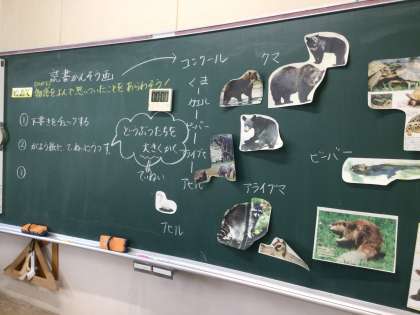 読書かんそう画
物語をよんで思ったことをあらわそう!
① 下書きをチェックする
② がようしに、ていねいにうつす
③
どうぶつたちを
大きくかく
ていねい
コンクール
くま
ビーバー
アライグマ
アヒル
クマ
ビーバー
アライグマ
アヒル